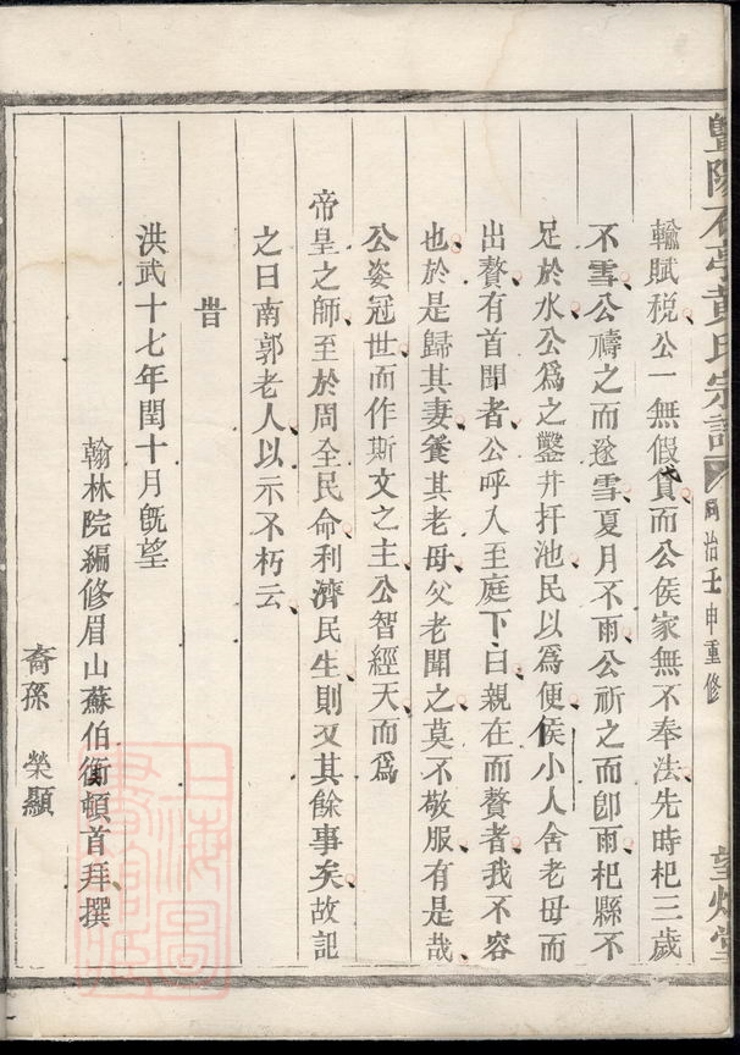 暨陽石亭黃氏宗譜 同治壬申重修 望烟堂
輸賦稅公一無假貸而公侯家無不奉法先時杞三歲
不雪公禱之而遂雪夏月不雨公祈之而卽雨杞縣不
足於水公爲之鑿井扞池民以爲便侯小人舍老母而
出贅有首聞者公呼入至庭下曰親在而贅者我不容
也於是歸其妻養其老母父老聞之莫不敬服有是哉
公姿冠世而作斯文之主公智經天而爲
帝皇之師至於周全民命利濟民生則又其餘事矣故記
之曰南郭老人以示不朽云
旹
洪武十七年閏十月旣望
翰林院編修眉山蘇伯衡頓首拜撰
裔孫 榮顯
上海圖書館藏